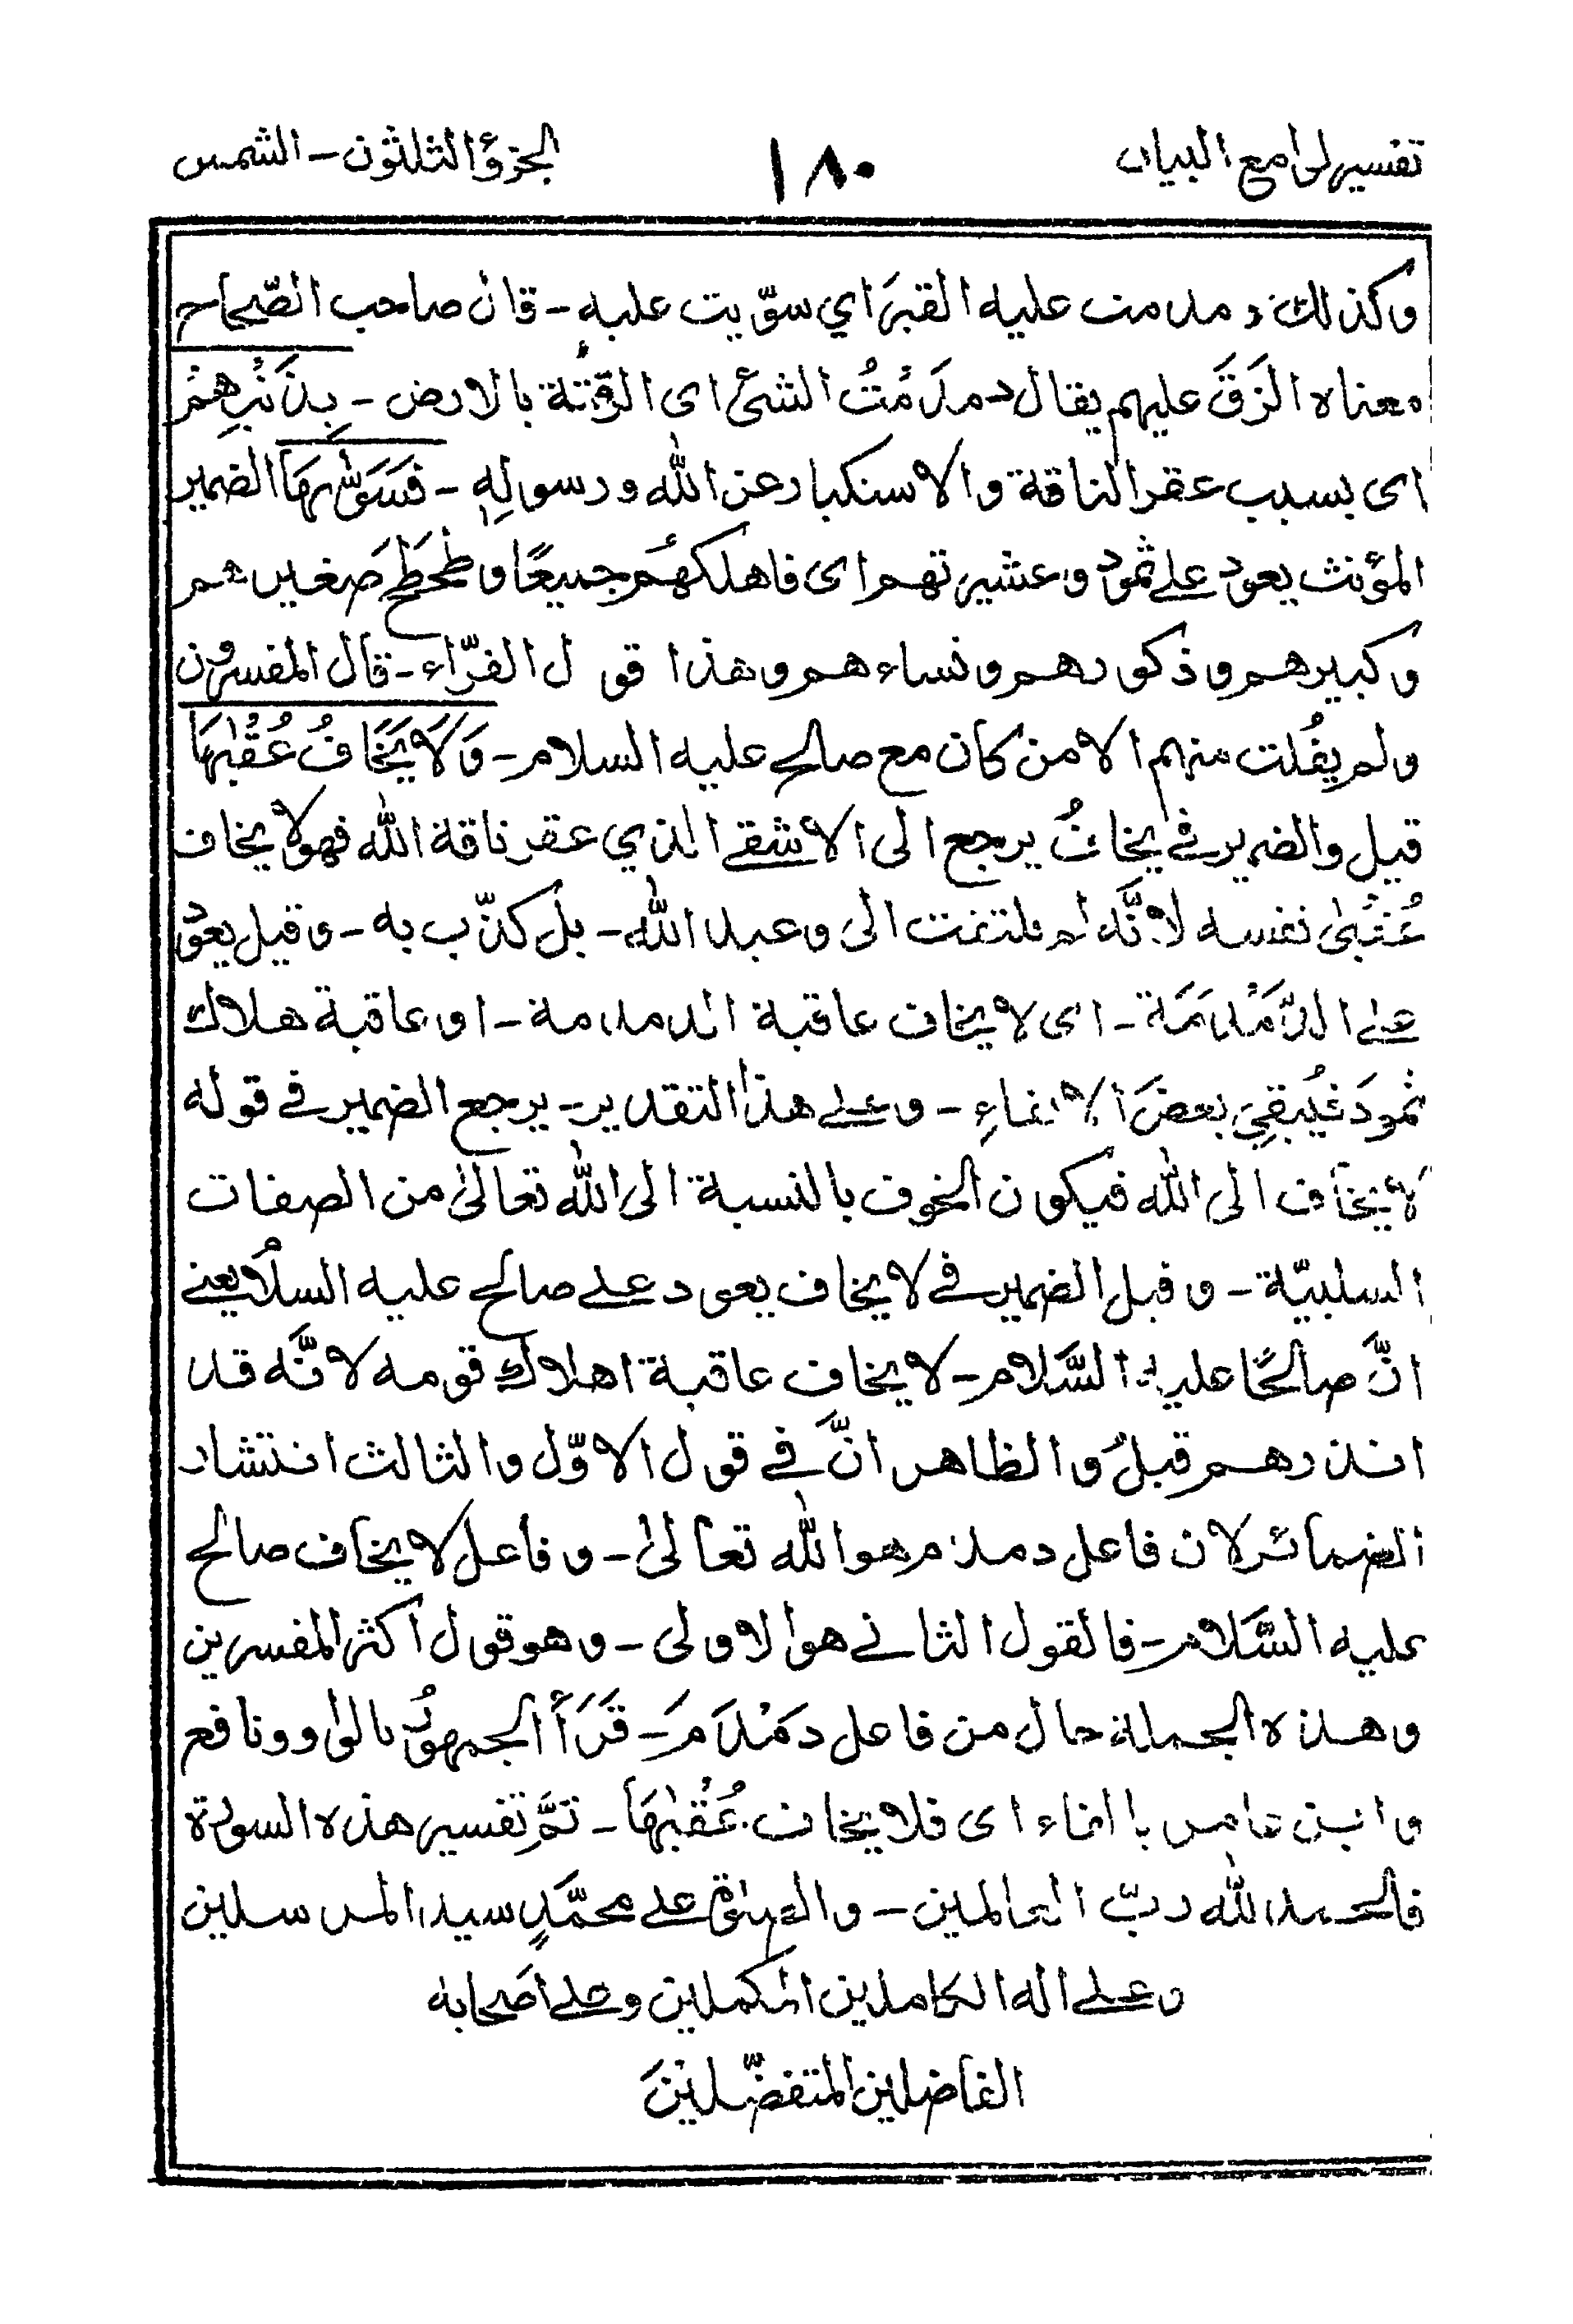 تفسير لوامع البيان
١٨٠
الجزؤ الثلثون - الشمس
وكذلك دمدمت عليه القبرَ اي سوّيت عليهِ - قال صاحب الصّحاح
معناه الزَقَ عليهم يقال دمدَمْتُ الشئ اى الزقتة بالارض - بِذَنْبِهِمْ
اى بسبب عقر الناقة والاستكبار عن الله ورسولِهٖ - فَسَوّٰىهَا الضمير
المؤنث يعود علے ثمود وعشيرتهم اى فاهلكهُم جميعًا وطَحطَحَ صغيرهم
وكبيرهم وذكورهم ونساءهم وهذا قول الفرّاء - قال المفسرون
ولم يفُلت منهم الا من كان مع صالح عليه السلام - وَلَا يَخَافُ عُقْبٰهَا
قيل والضمير فے يخافُ يرجع الى الاشقے الذي عقر ناقة الله فهو لا يخاف
عُقبٰى نفسه لانَّه لم يلتفت الى وعيد الله - بل كذّب به - وقيل يعود
علے الدَّمْدَمَة - اى لا يخاف عاقبة الدمدمة - او عاقبة هلاك
ثمودَ فيُبقِيَ بعضَ الابقاءِ - وعلے هذا التقدير - يرجع الضمير فے قوله
لا يَخاف الى الله فيكون الخوف بالنسبة الى الله تعالىٰ من الصفات
السلبيّة - وقيل الضمير فے لا يخاف يعود علے صالح عليه السلام يعنے
انَّ صالحًا عليه السَّلام - لا يخاف عاقبة اهلاك قومه لانَّه قد
انذرهم قبلُ والظاهر انَّ فے قول الاوّل والثالث انتشار
الضمائر لان فاعل دمدم هو الله تعالىٰ - وفاعل لا يخاف صالح
عليه السَّلام - فالقول الثانے هو الاولى - وهو قول اكثر المفسرين
وهذه الجملة حال من فاعل دَمْدَمَ - قَرَأَ الجمهورُ بالواو ونافع
وابن عامر بالفاء اى فلا يخاف عُقْبٰهَا - تمَّ تفسير هذه السورة
فالحمد لله ربّ العالمين - والصلوٰة علے محمَّدٍ سيد المرسلين
وعلے اله الكاملين المكملين وعلے اصحابه
الفاضلين المتفضّلينَ